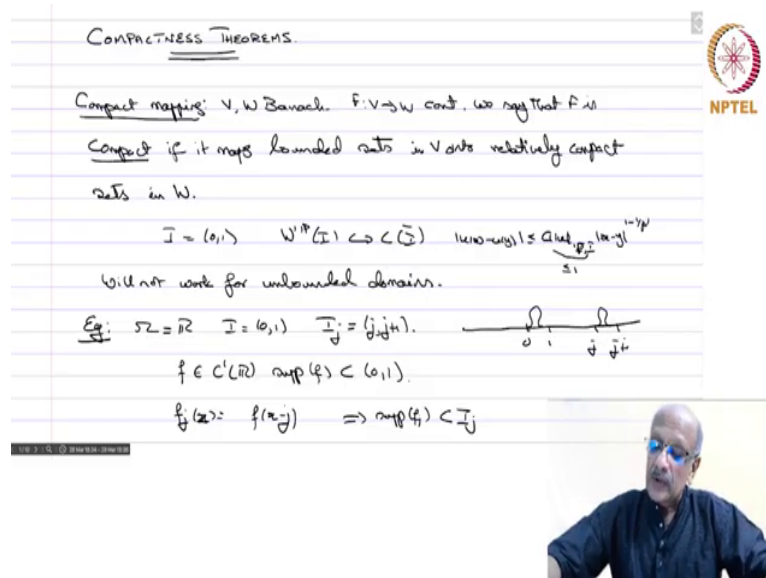 COMPACTNESS THEOREMS.
NPTEL
Compact mapping: V, W Banach. F: V→W cont. We say that F is
compact if it maps bounded sets in V onto relatively compact
sets in W.
I = (0,1) W^{1,p}(I) ↪ C(Ī) |u(x)-u(y)| ≤ C|u|_{1,p,I} |x-y|^{1-1/p}
≤ 1
Will not work for unbounded domains.
Eg: Ω = ℝ I = (0,1) I_j = (j, j+1).
0 1 j j+1
f ∈ C'(ℝ) supp(f) ⊂ (0,1).
f_j(x) = f(x-j) ⇒ supp(f_j) ⊂ I_j